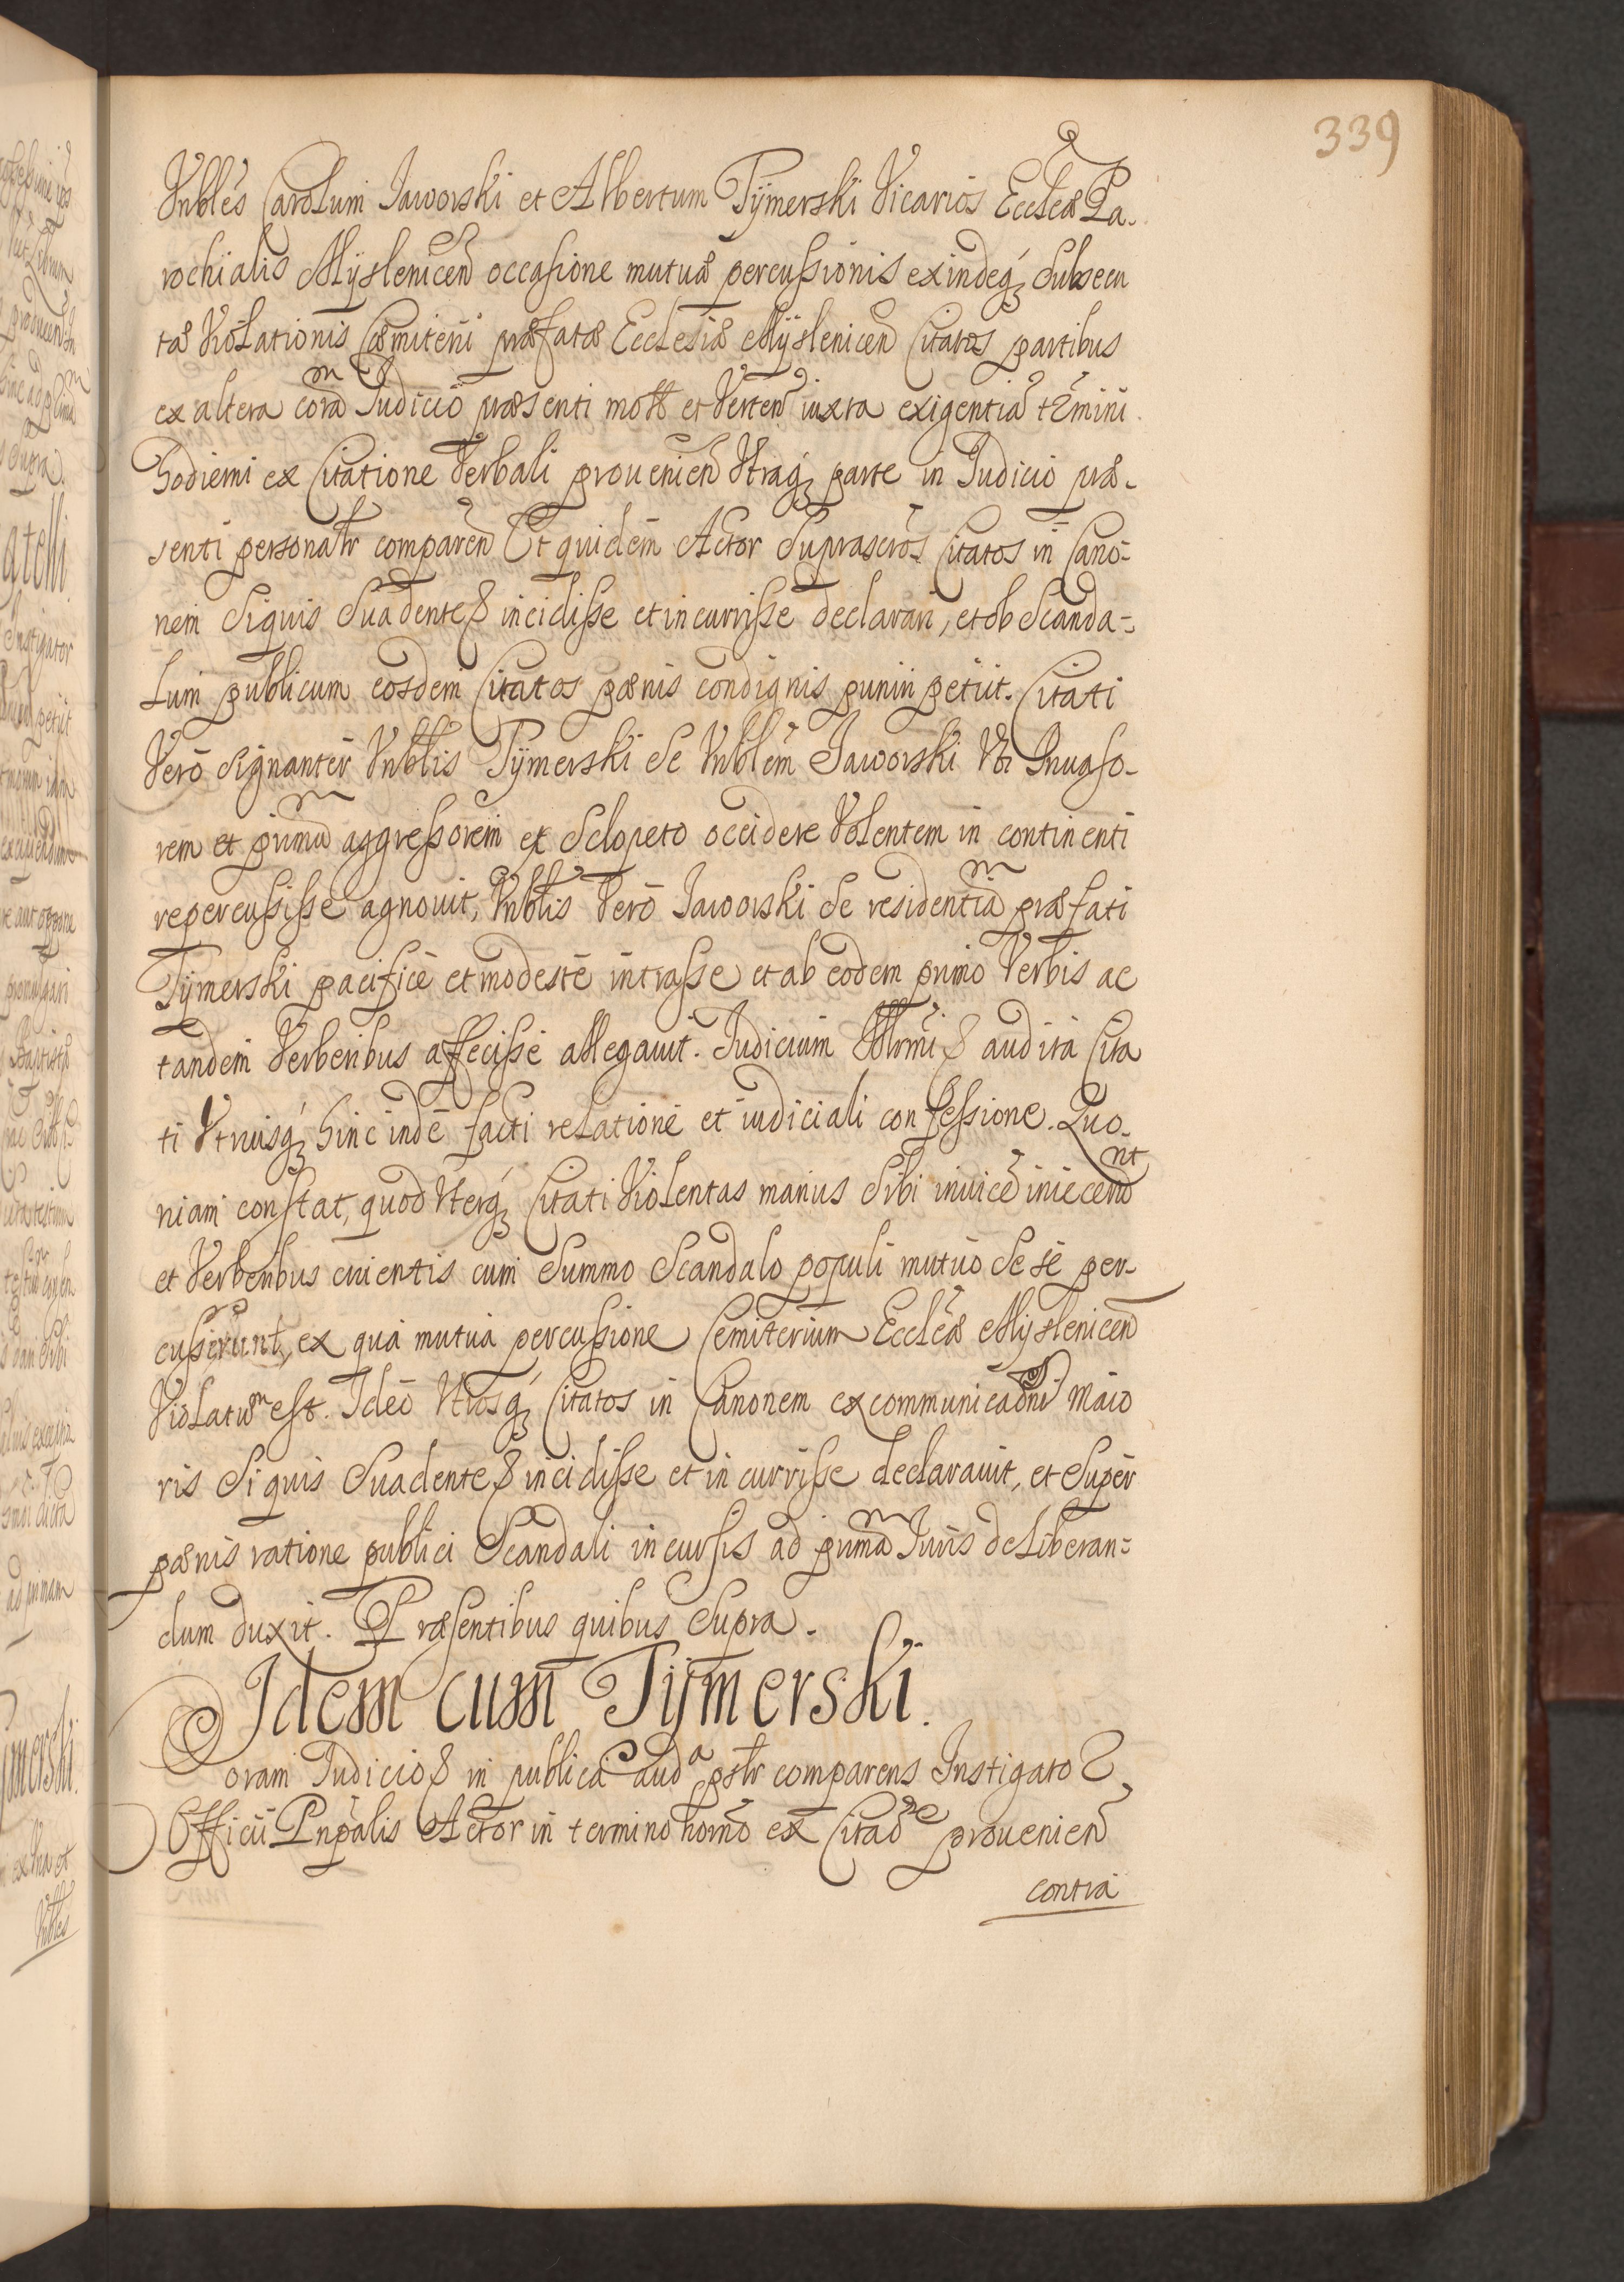 339
Vnbles Carolum Jaworski et Albertum Tÿmerski Vicarios Eccleæ Pa-
rochialis Mÿslenicen occasione mutuæ percussionis exindeq₃ Subsecu
tæ Violationis Cæmiterii præfatæ Ecclesiæ Mÿslenicen Citatos partibus
ex altera corã Judicio præsenti mott et Verten iuxta exigentiã termini
hodierni ex Citatione Verbali prouenien Vtraq₃ parte in Judicio præ-
senti personalr comparen Et quidem Actor Suprascros Citatos in Cano-
nem Siquis Suadente & incidisse et incurrisse declarari, et ob Scanda-
Lum publicum eosdem Citatos pœnis condignis puniri petiit. Citati
Vero Signanter Vnblis Tÿmerski Se Vnblem Jaworski Vti Inuaso-
rem et primũ aggressorem ex Sclopeto occidere Volentem in continenti
repercussisse agnouit, Vnblis Vero Jaworski Se residentiã præfati
Tÿmerski pacifice et modeste intrasse et ab eodem primo Verbis ac
tandem Verberibus affecisse allegauit. Judicium & audita Cita
ti Vtriusq₃ hinc inde facti relatione et iudiciali confessione. Quo-
niam constat, quod Vterq₃ Citati Violentas manus Sibi inuicẽ iniecerunt
et Verberibus cruentis cum Summo Scandalo populi mutuo Sese per-
cusserunt, ex qua mutua percussione Cemiterium Eccleæ Mÿslenicen
Violatum est. Ideo Vtrosq₃ Citatos in Canonem excommunicaonis Maio
ris Siquis Suadente & incidisse et incurrisse declarauit, et Super
pœnis ratione publici Scandali incursis ad primã Juris deliberan-
dum duxit. Præsentibus quibus Supra.
Idem cum Tÿmerski.
Coram Judicio & in publica auda pstr comparens Instigator
Officii Pnpalis Actor in termino horno ex Citaone prouenien
contra